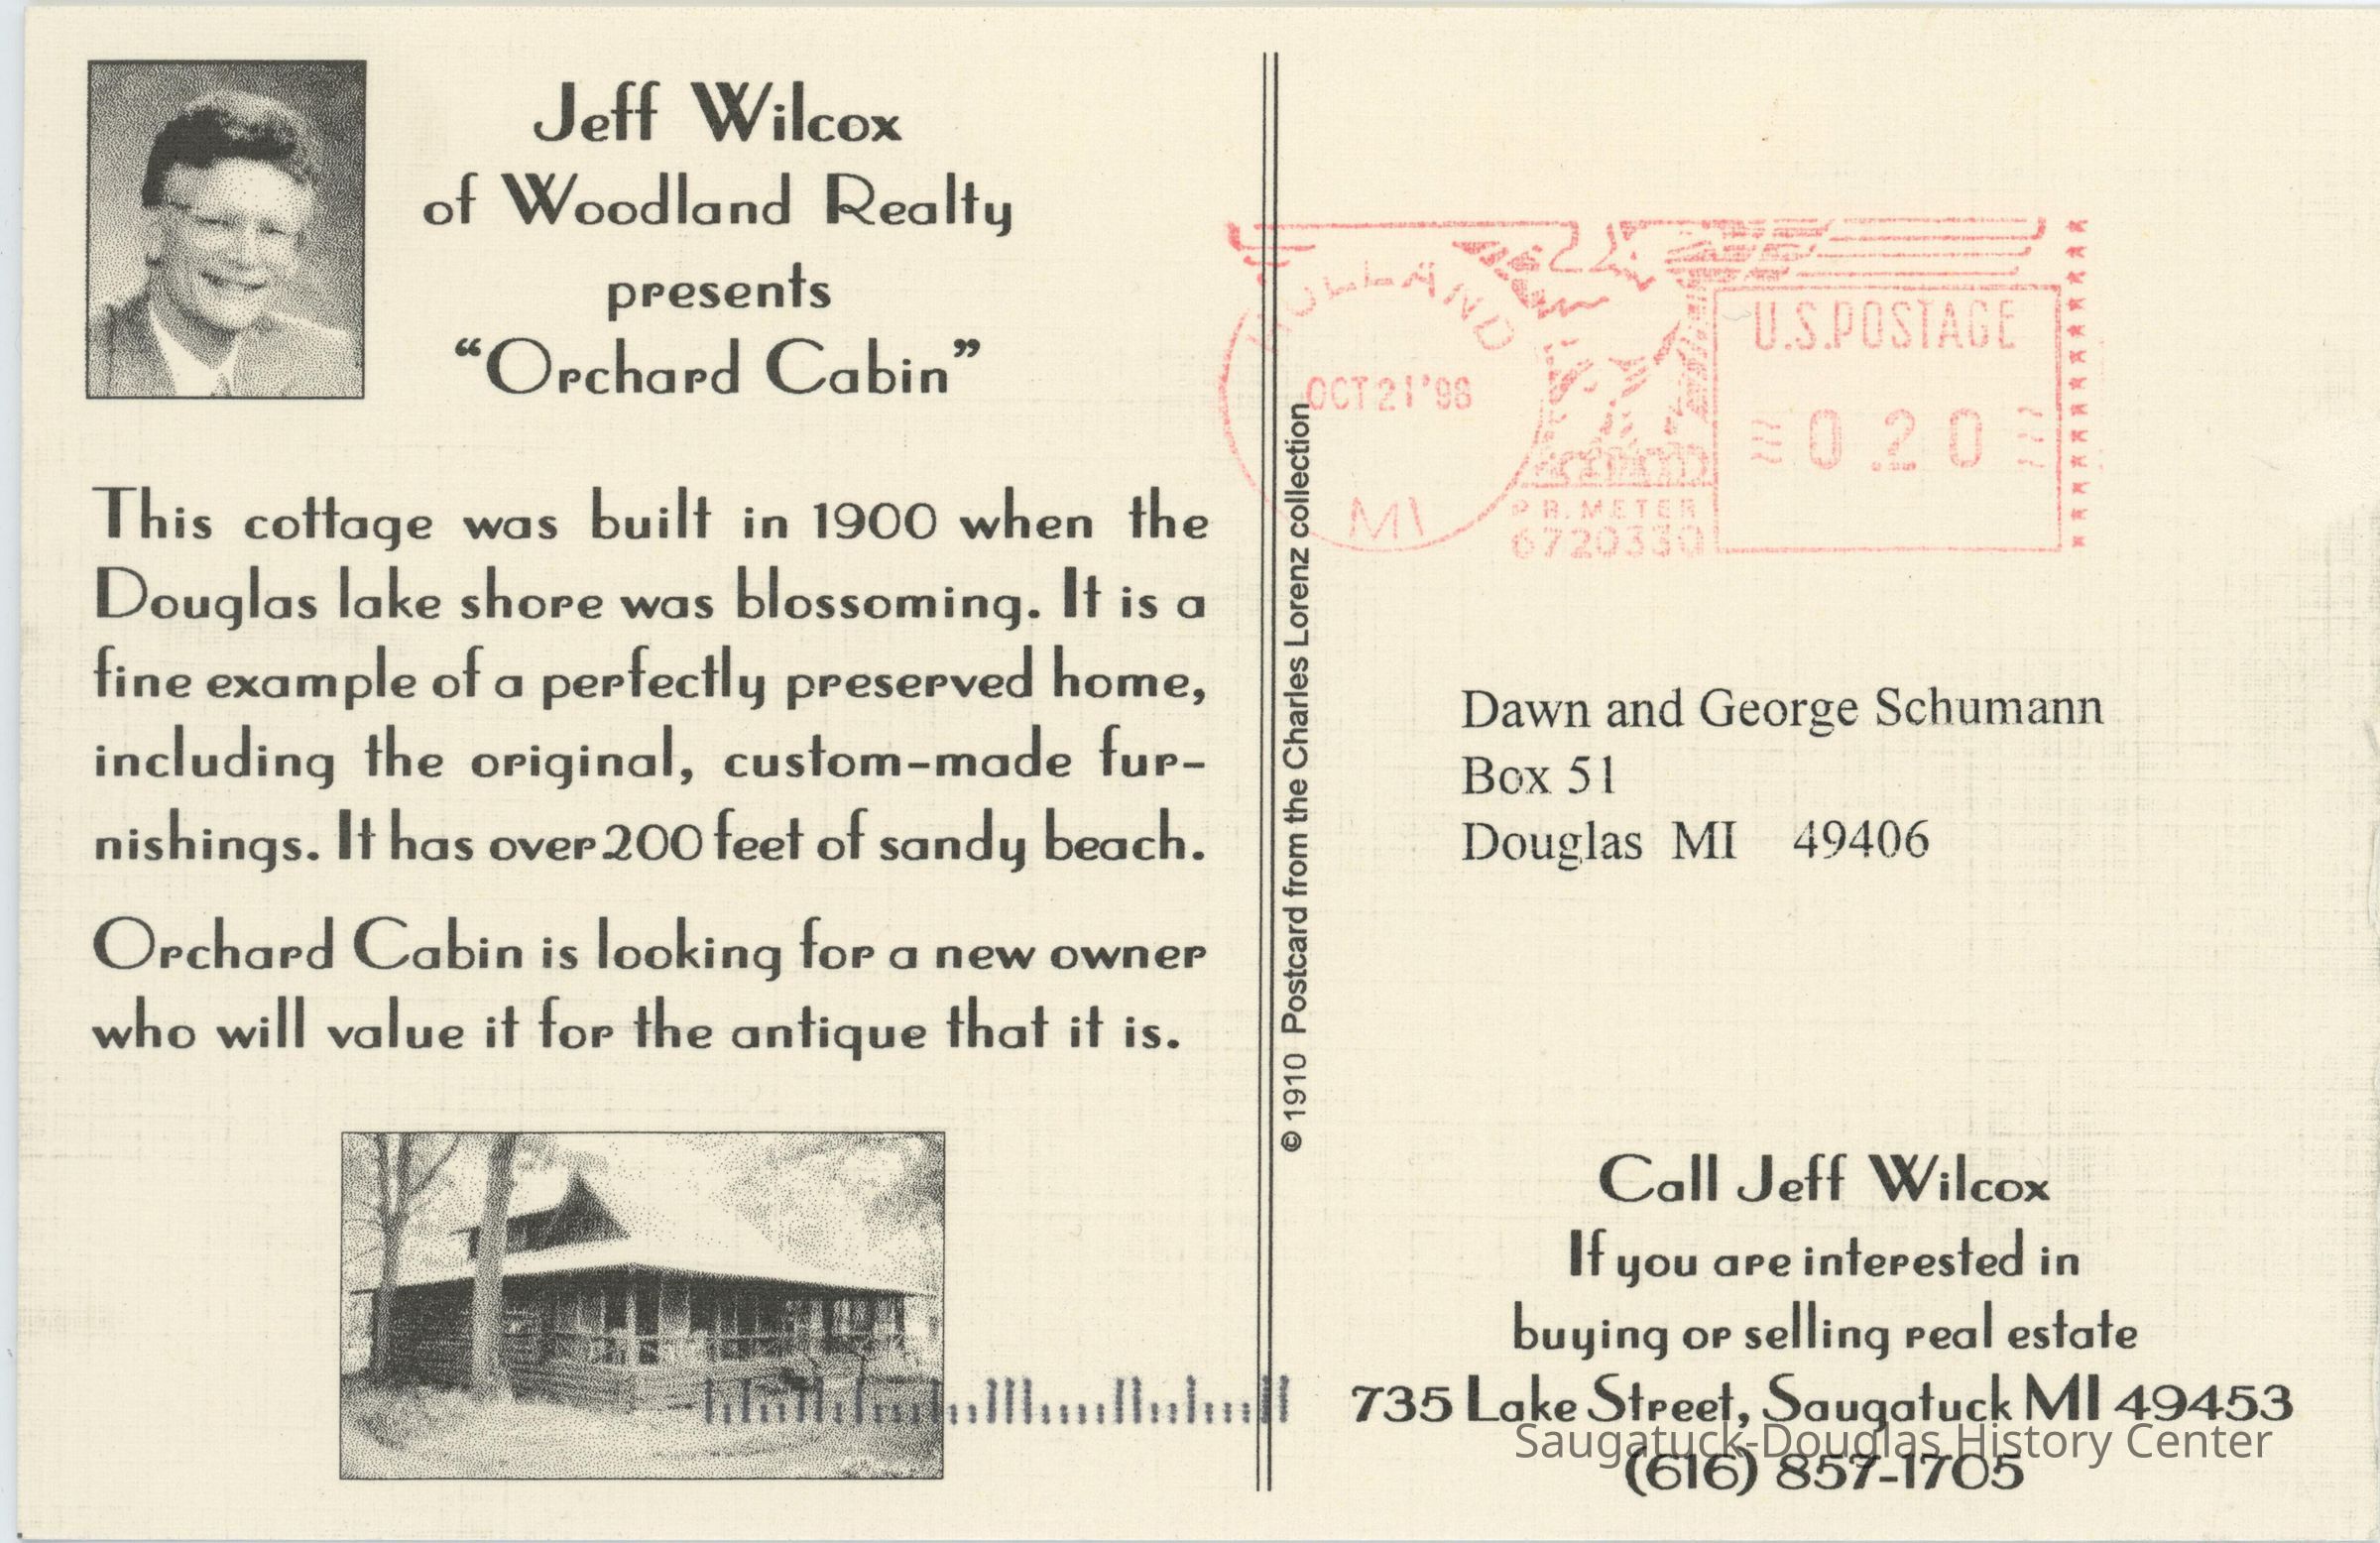 Jeff Wilcox
of Woodland Realty
presents
“Orchard Cabin”
This cottage was built in 1900 when the
Douglas lake shore was blossoming. It is a
fine example of a perfectly preserved home,
including the original, custom-made fur-
nishings. It has over 200 feet of sandy beach.
Orchard Cabin is looking for a new owner
who will value it for the antique that it is.
© 1910 Postcard from the Charles Lorenz collection
HOLLAND
OCT 21 '98
MI
P.B. METER
6720330
U.S. POSTAGE
0 .2 0
Dawn and George Schumann
Box 51
Douglas MI 49406
Call Jeff Wilcox
If you are interested in
buying or selling real estate
735 Lake Street, Saugatuck MI 49453
Saugatuck-Douglas History Center
(616) 857-1705